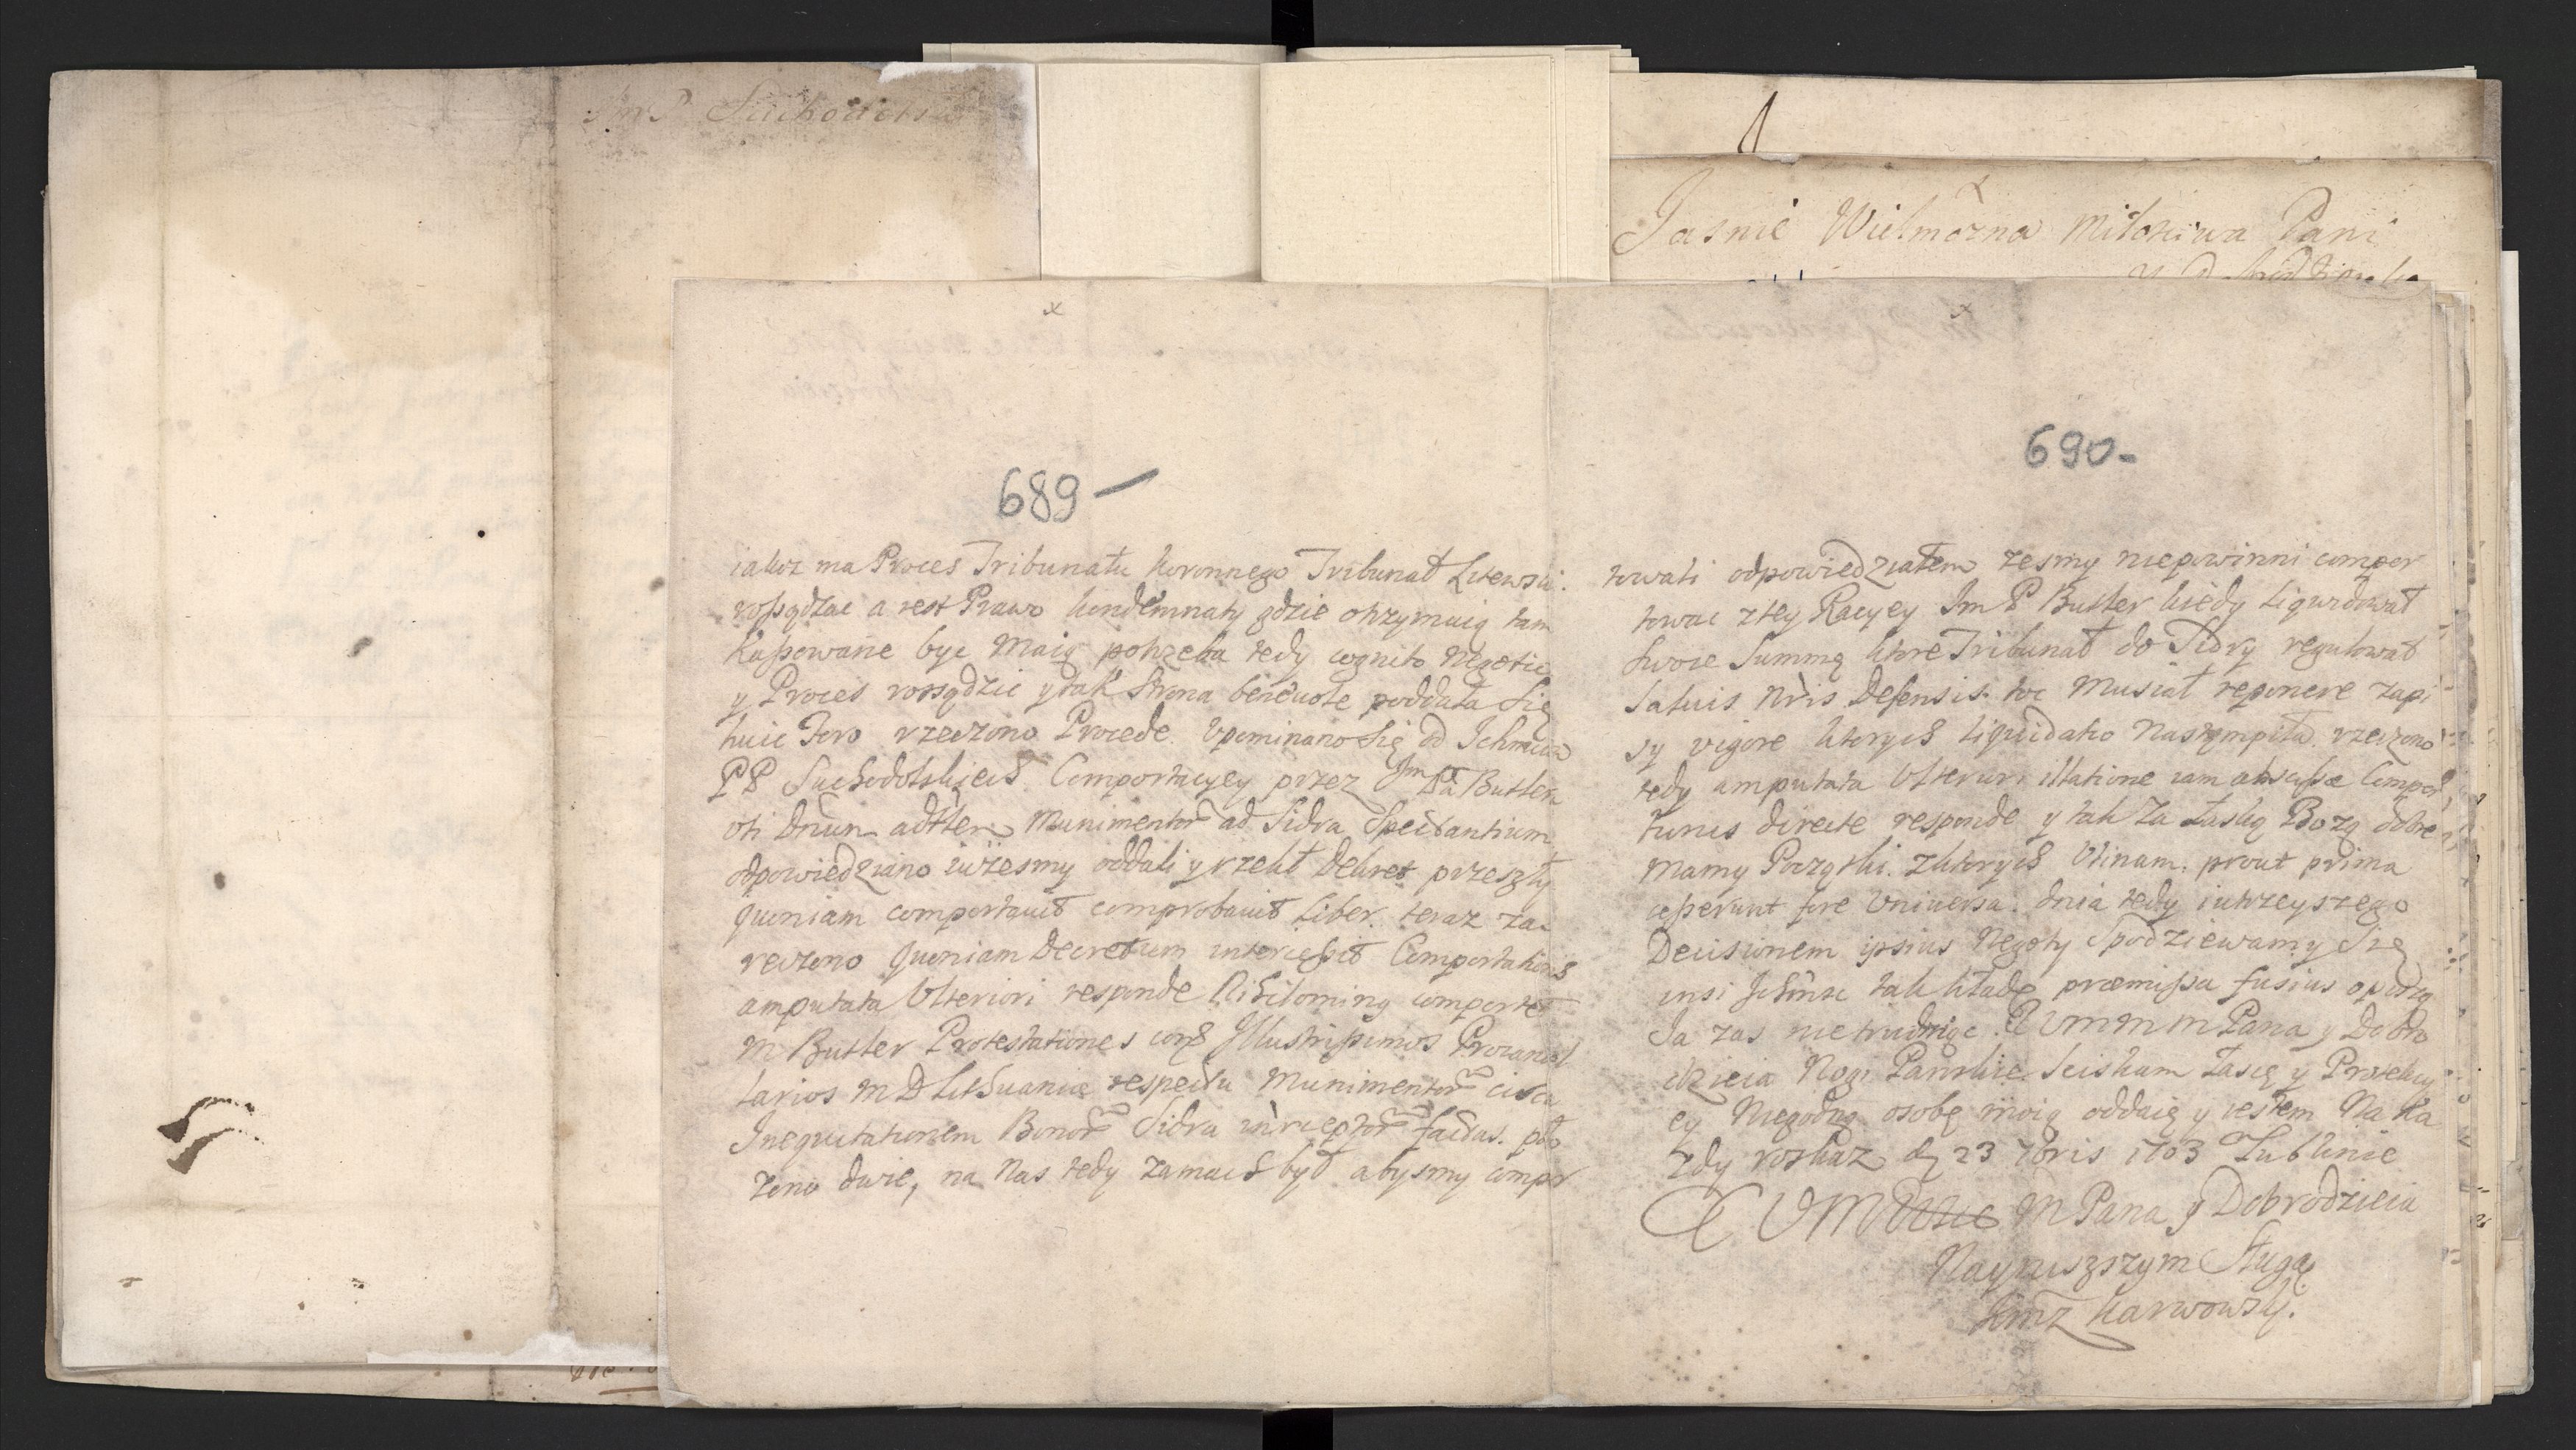 Jm P Suchodols
Jasnie Wielmożna Miłosciwa Pani
689 —
iakoz ma Proces Tribunału koronnego Tribunał Litewski
rossądzac a iest Prawo kondemnaty gdzie otrzymuią tam
Kassowane byc Maią potrzeba tedy cognito Negotio
y Proces rossądzic y tak strona benevole poddała Się
huic Foro rzeczono Procede. Vpominano Się od Ichmciow
PP Suchodolskiech Comportacyey przez Jm Pa Butlera
oti Dnum adtten Munimentor ad Sidra Spectantium
odpowiedziano iużesmy oddali y rzekł Dekret przeszły
quoniam comportavit comprobavit Liber. teraz za
rzeczono quoniam Decretum intercessit Comportationis
amputata Ulteriori responde Nihilominq comportet
M Butler Protestationes corg Illustrissimos Procancel
larios M D Lithuaniæ respectu Munimentor circa
Inequitationem Bonor Sidra interceptor factas. poło
zono dwie, na Nas tedy zamach był abysmy compor
690 -
towali odpowiedziałem zesmy niepowinni compor
towac z tey Racyey Jm P Butler kiedy liquidował
swoie Summą ktore Tribunał do Sidry regulował
Salvis Nris Defensis. toc Musiał reponere zapi
sy vigore ktorych liquidatio Nastąmpiła. rzeczono
tedy amputata Ulteriori illatione iam abscissæ Compor
tunis directe responde y tak za Łaską Bozą dobre
Mamy Początki. z ktorych Utinam. prout prima
cesserunt fore Universa. dnia tedy iutrzeyszego
Decisionem ipsius Negoty Spodziewamy Się
insi Ichmsc tak kładę præmissa fusius opiszą
Ja zas nietrudniąc WMMM Pana y Dobro
dzieia Nogi Pańskie Sciskam Łascę y Protekcy
ey Niegodną osobę moią oddaię y iestem Na Ka
zdy roskaz d 23 7bris 1703 Lublinie
WM M Pana y Dobrodzieia
Nayniszszym Sługą
Karwowsky.